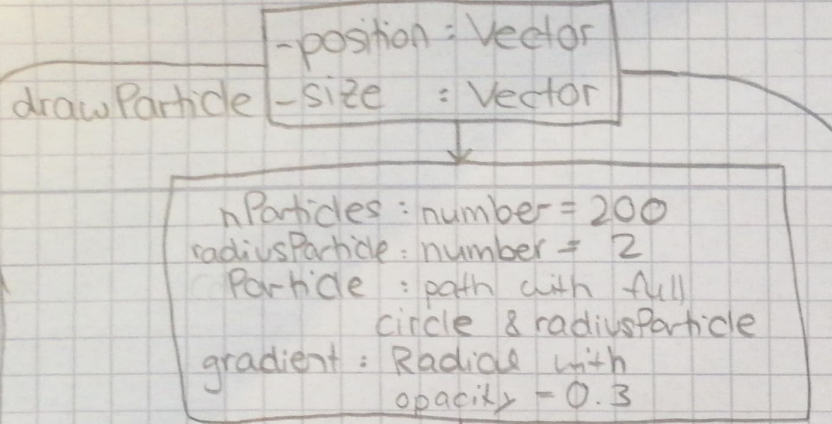 -position : Vector
drawParticle -size : Vector
nParticles : number = 200
radiusParticle : number = 2
Particle : path with full
circle & radiusParticle
gradient : Radial with
opacity - 0.3